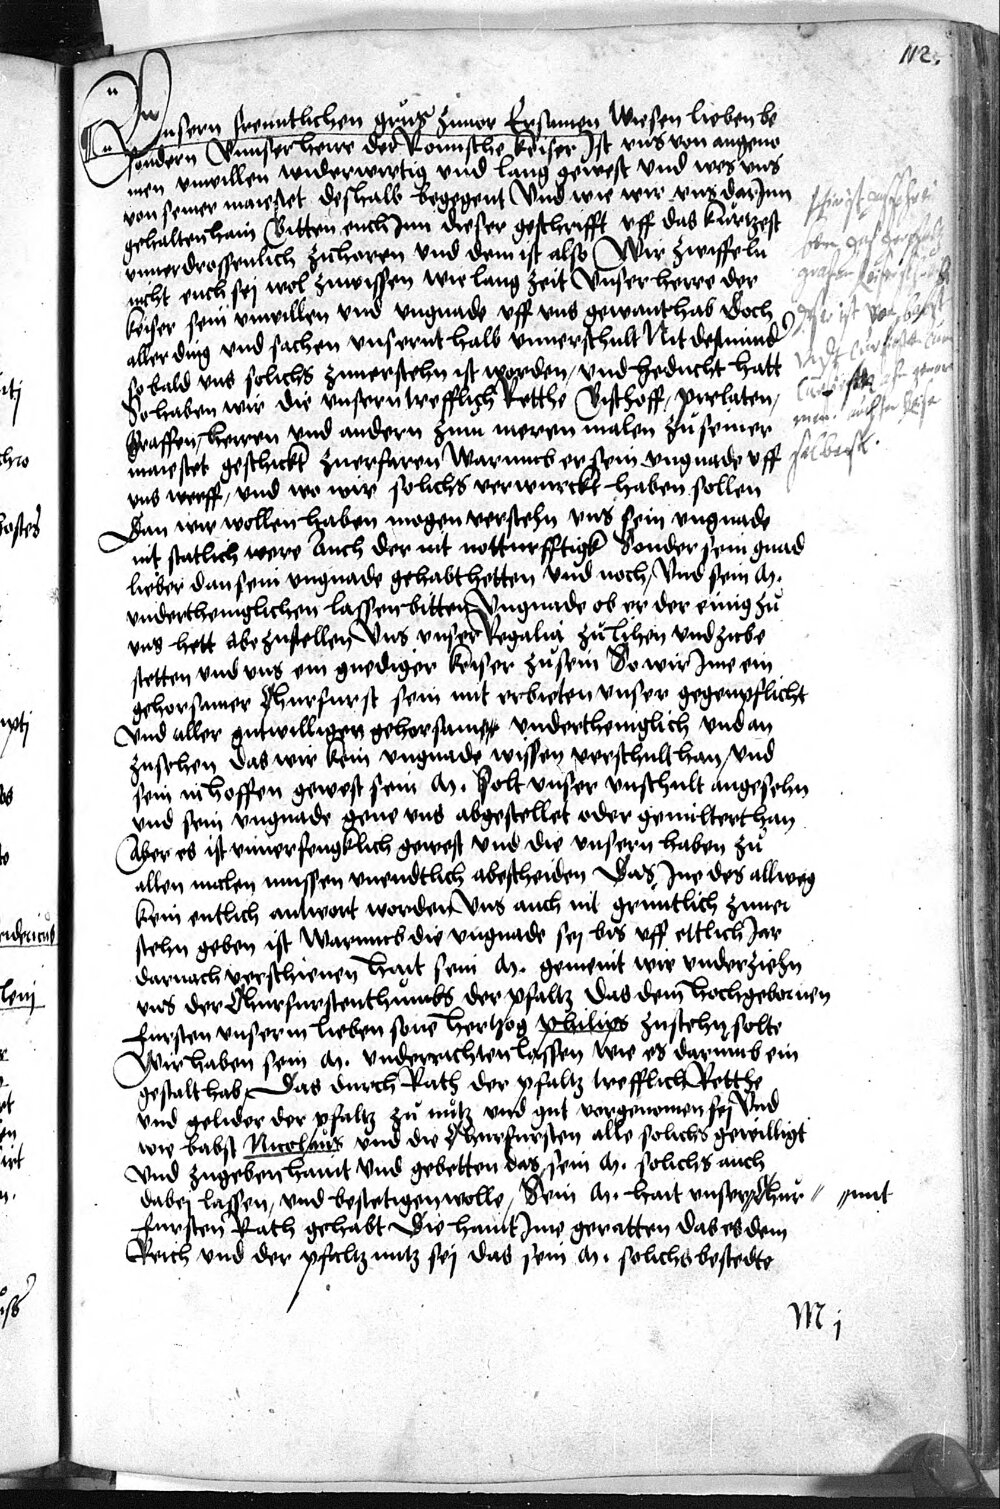 112.
Unsern freuntlichen grus zuuor Ersamen Wiesen lieben be
sondern Unnser herre der Romische Keiser Ist uns von angeno
men unwillen widerwirtig und lang gewest und wes uns
von seiner maiestet deshalb begegent Und wie wir uns dar Inn
gehalten hain Bitten euch Inn dieser geschrifft uff das kurtzest
unuerdrossenlich zuhoren und dem ist also Wir zwiffeln
nicht euch sej wol zuwissen wie lang zeit Unser herre der
keiser sein unwillen und ungnade uff uns gewant hab Doch
aller ding und sachen unsernt halb unuerschult Nit destminder
so bald uns solichs zuuerstehn ist worden / und beducht hatt
So haben wir die unsern trefflich Retthe Bischoff / prelaten /
Graffen / herren und andern zum meren malen zu seiner
maiestet geschickt zuerfaren Warumb er sein ungnade uff
uns werff / und wo wir solichs verwurckt haben sollen
Dan wir wollen haben mogen verstehn uns sein ungnade
nit statlich were Auch der nit notturfftigk Sonder sein gnad
lieber dan sein ungnade gehabt hetten und noch / Und sein M.
undertheniglichen lassen bitten Ungnade ob er der einig zu
uns hett abezustellen Uns unser Regalia zu lihen und zube
stetten und uns ein gnediger keiser zusein So wir Ime ein
gehorsamer Churfurst sein mit erbieten unser gegenpflicht
Und aller gutwilligen gehorsam undertheniglich und an
zusehen das wir kein ungnade wissen verschult han / und
sein in hoffen gewest sein M. solt unser unschult angesehn
und sein ungnade gene uns abgestellet oder gemiltert han
Aber es ist unuerfengklich gewest und die unsern haben zu
allen malen mussen unendtlich abescheiden Das Ine des allweg
kein entlich antwort worden Uns auch nit gruntlich zuuer
stehn geben ist Warumb die ungnade sej bis uff ettlich Jar
darnach verschienen hait sein M. gemeint wir underziehn
uns der Churfurstenthumbs der pfaltz Das dem hochgebornen
fursten unserm lieben sone hertzog philips zustehn solte
Wir haben sein M. underrichten lassen wie es darumb ein
gestalt hab Das durch Rath der pfaltz trefflich Retthe
und gelider der pfaltz zu nutz und gut vorgenomen sej Und
wie babst Nicolaus und die Churfursten alle solichs gewilligt
Und zugeben haint Und gebetten das sein M. solichs auch
dabej lassen / und bestetigen wolle / Sein M. hait unser Chur // // mit
fursten Rath gehabt Die haint Ime geratten das es dem
Reich und der pfaltz nutz sej das sein M. solichs bestedte
M j